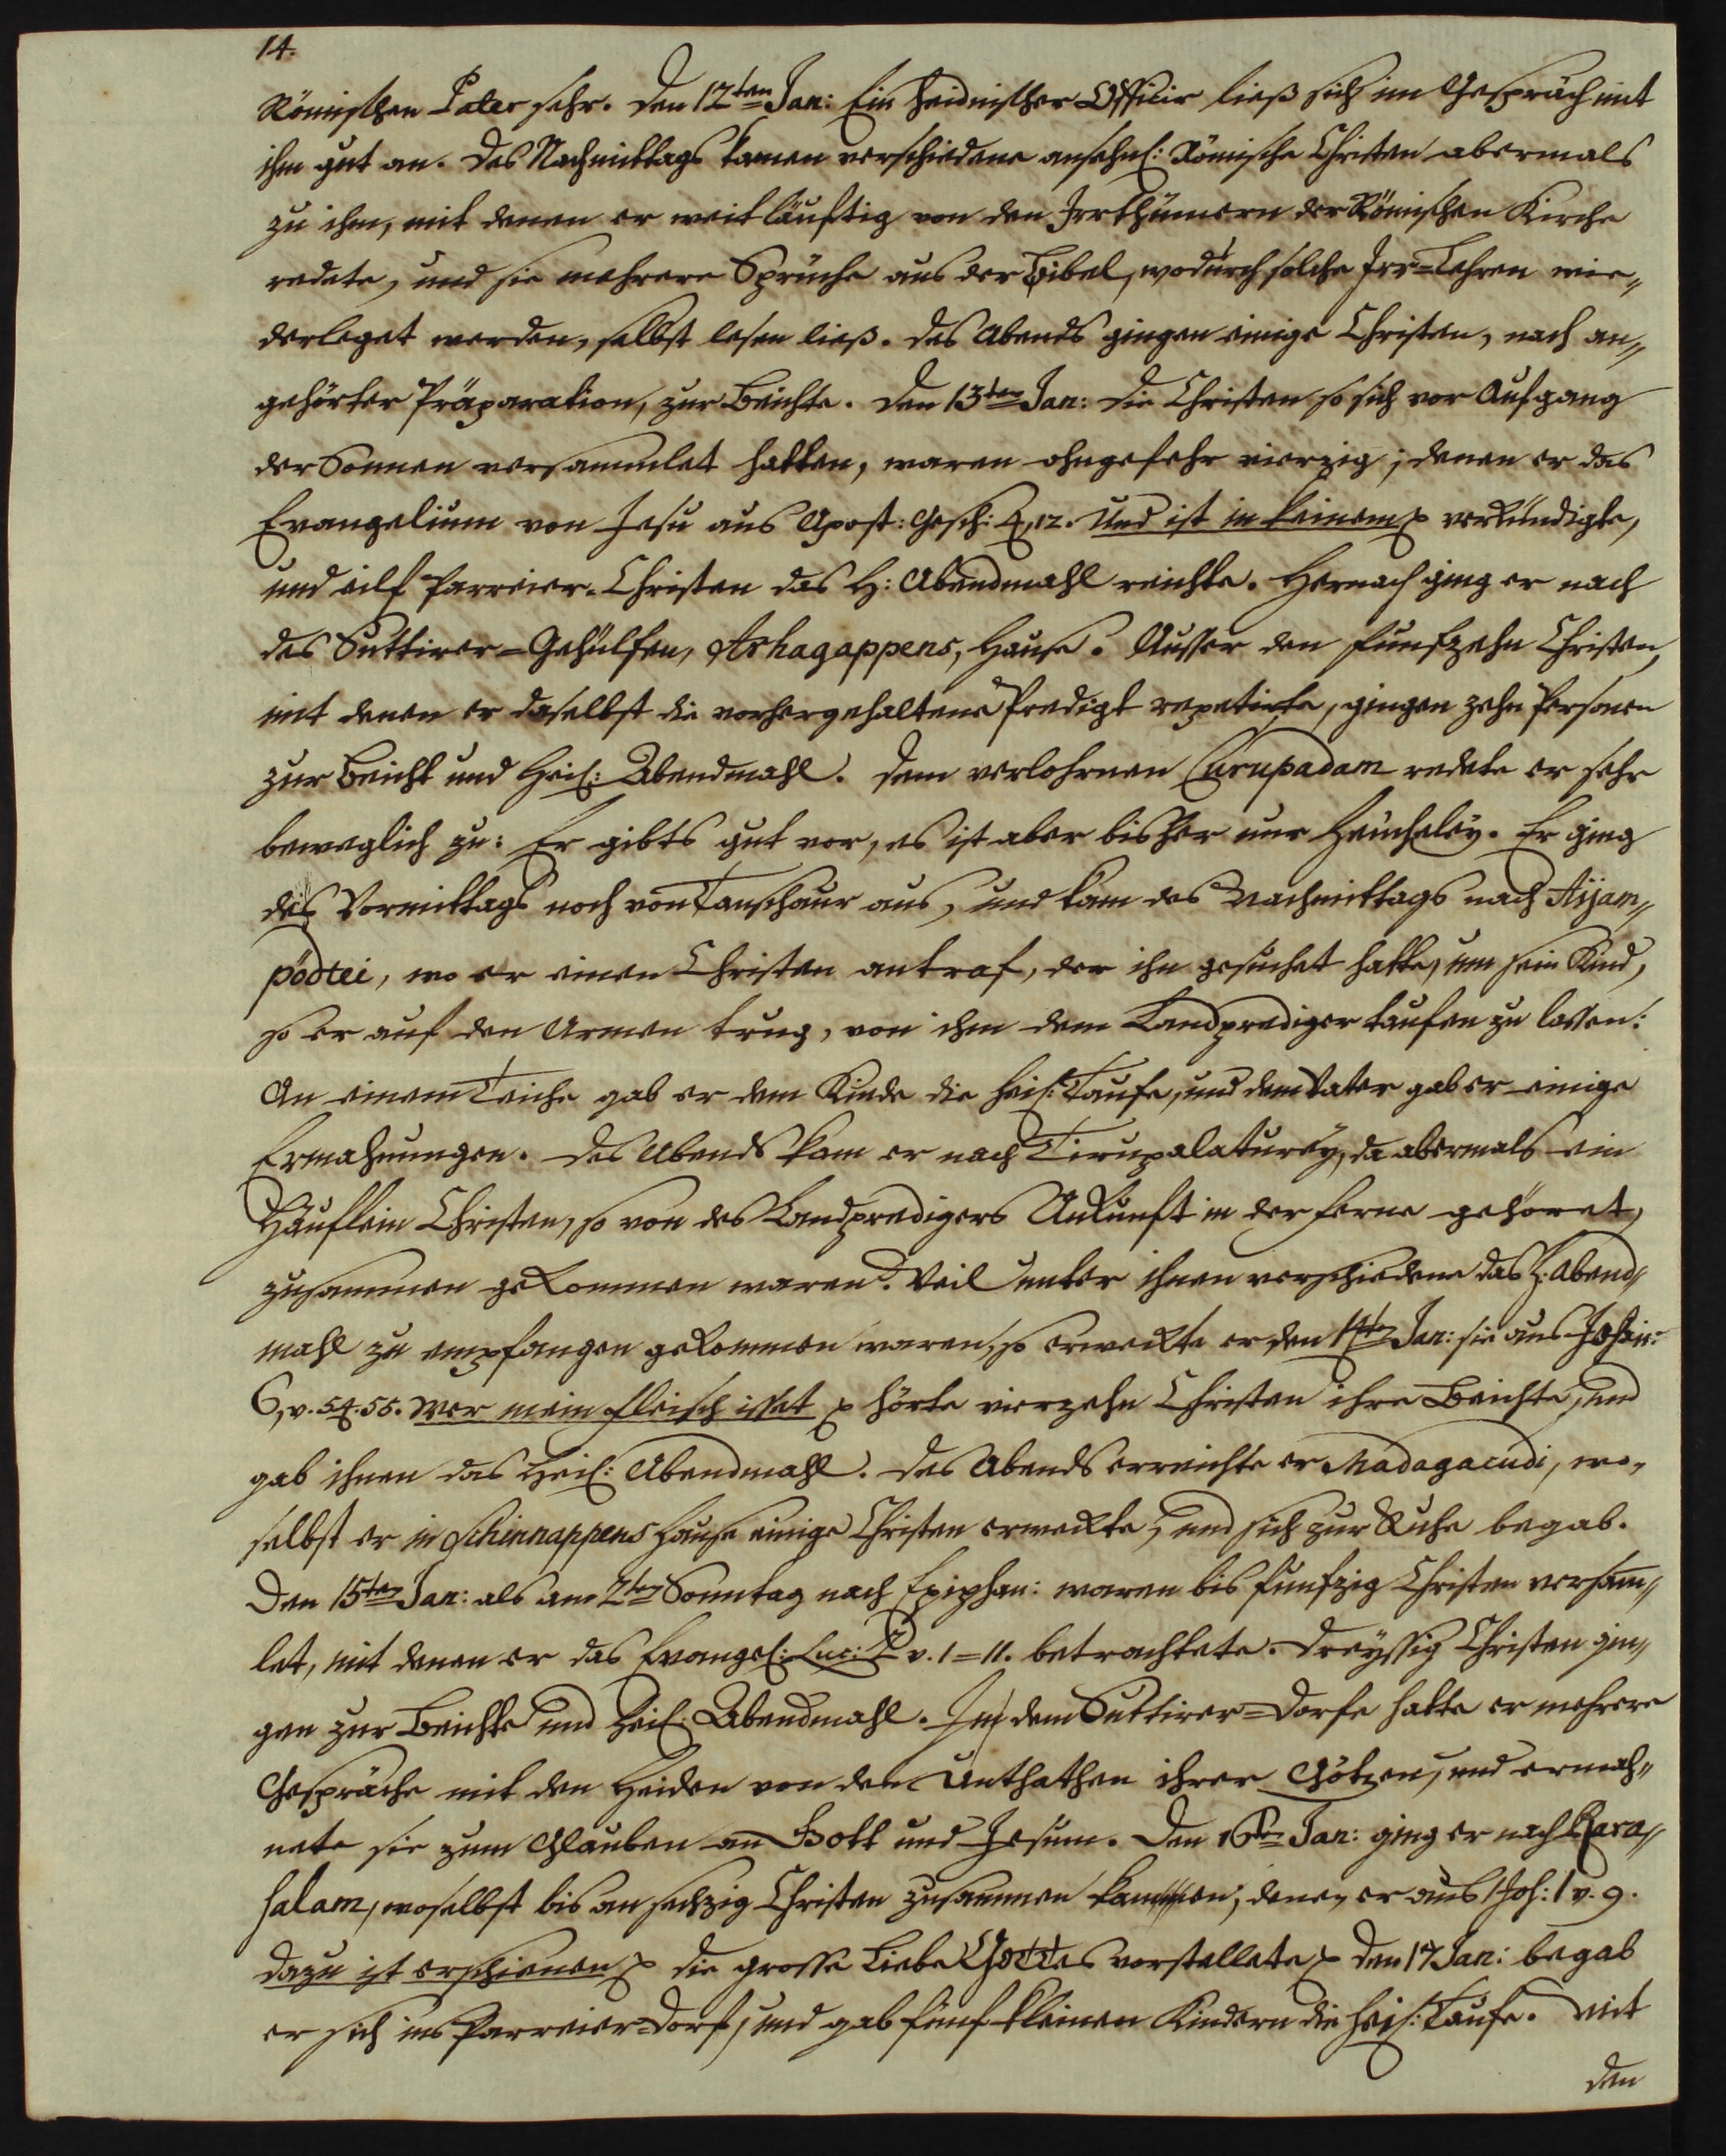 14.
Römischen Pater sehr. Den 12ten Jan: Ein heidnischer Officir ließ sich im Gespräch mit
ihm gut an. Des Nachmittags kamen verschiedene ansehnl: Römische Christen abermals
zu ihm, mit denen er weitläuftig von den Irrthümern der Römischen Kirche
redete, und sie mehrere Sprüche aus der Bibel, wodurch solche Irr=Lehren wie„
derleget werden, selbst lesen ließ. Des Abends gingen einige Christen, nach an„
gehörter Präparation, zur Beichte. Den 13ten Jan: Die Christen so sich vor Aufgang
der Sonnen versammlet hatten, waren ohngefehr vierzig; denen er das
Evangelium von Jesu aus Apost: Gesch: 4,12. Und ist in keinem p verkündigte,
und eilf Parreier-Christen das H: Abendmahl reichte. Hernach ging er nach
des Suttirer=Gehülfen, Ashagappens, Hause. Ausser den funfzehn Christen,
mit denen er daselbst die vorhergehaltene Predigt repetirte, gingen zehn Personen
zur Beicht und Heil: Abendmahl. Dem verlohrnen Curupadam redete er sehr
beweglich zu: Er gibts gut vor, es ist aber bisher nur Heucheley. Er ging
des Vormittags noch von Tanschaur aus, und kam des Nachmittags nach Aijam„
pödtei, wo er einen Christen antraf, der ihn gesuchet hatte, um sein Kind,
so er auf den Armen trug, von ihm dem Landprediger taufen zu lassen:
An einem Teiche gab er dem Kinde die Heil: Taufe, und dem Vater gab er einige
Ermahnungen. Des Abends kam er nach Tirupalaturey, da abermals ein
Häuflein Christen, so von des Landpredigers Ankunft in der Ferne gehöret,
zusammen gekommen waren. Weil unter ihnen verschiedene das H: Abend„
mahl zu empfangen gekommen waren, so erweckte er den 14ten Jan: sie aus Johan:
6, v. 54. 55. Wer mein Fleisch isset p hörte vierzehn Christen ihre Beichte, und
gab ihnen das Heil: Abendmahl. Des Abends erreichte er Madagacudi, wo„
selbst er in Schinnappens Hause einige Christen erweckte, und sich zur Ruhe begab.
Den 15ten Jan: als am 2ten Sonntag nach Epiphan: waren bis funfzig Christen versam̄„
let, mit denen er das Evangel: Luc: 2 v. 1=11. betrachtete. Dreyssig Christen gin„
gen zur Beichte und Heil: Abendmahl. In dem Suttirer=Dorfe hatte er mehrere
Gespräche mit den Heiden von den Unthathen ihrer Götzen, und ermah„
nete sie zum Glauben an Gott und Jesum. Den 16ten Jan: ging er nach Rara„
salam, woselbst bis an sechzig Christen zusammen kamen, denen er aus 1 Joh: 1 v. 9.
Dazu ist erschienen p die grosse Liebe Gottes vorstellete p Den 17 Jan: begab
er sich ins Parreier=Dorf, und gab fünf kleinen Kindern die Heil: Taufe. Mit
den